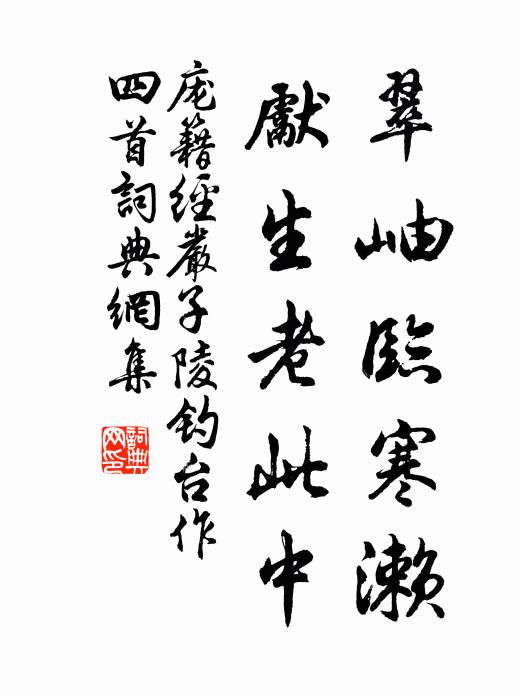 翠岫臨寒瀨
獻生老此中
庞籍經嚴子陵釣台作
四首詞典網集
詞典
网印